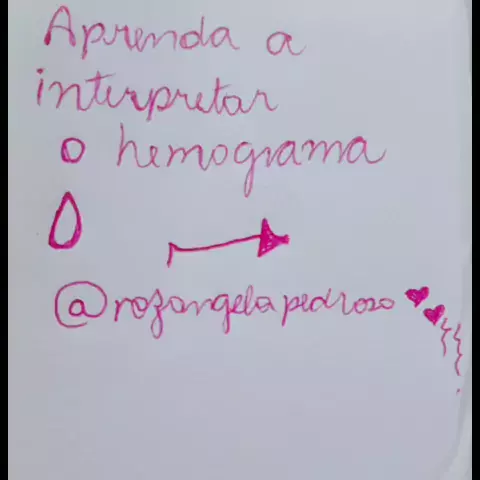 Aprenda a
interpretar
o hemograma
@rozangelapedroso